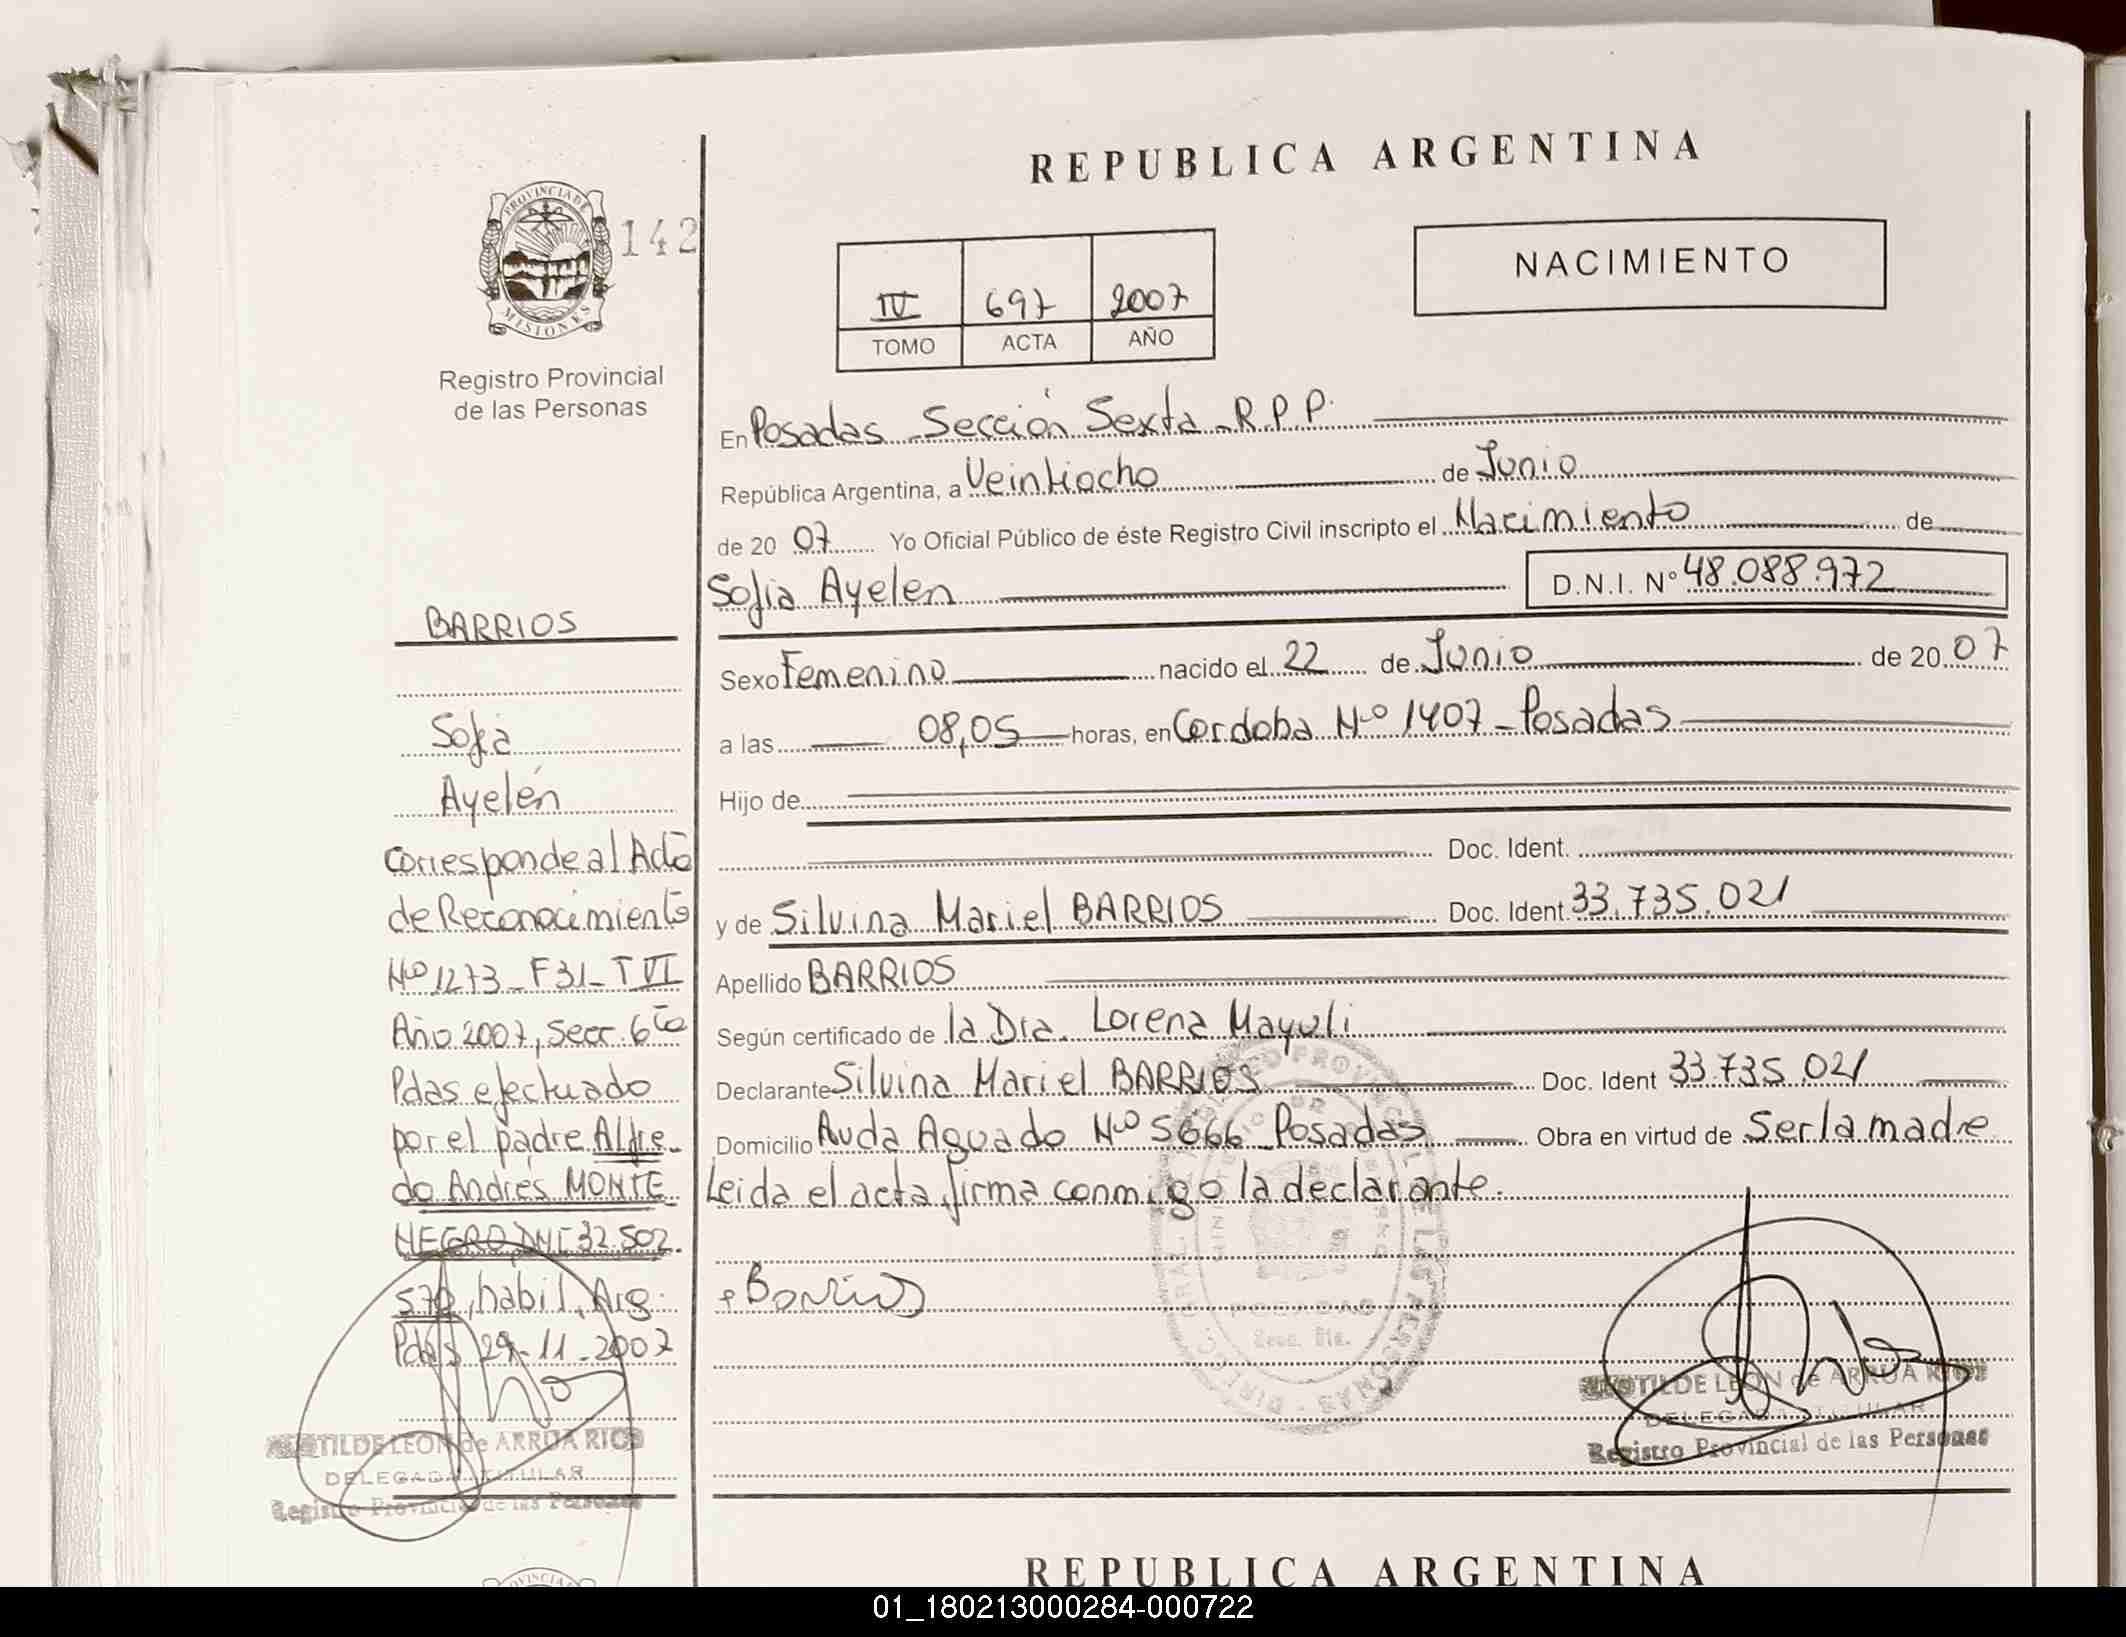 REPUBLICA ARGENTINA
PROVINCIA DE
MISIONES
142
Registro Provincial
de las Personas
IV 697 2007
TOMO ACTA AÑO
NACIMIENTO
En Posadas - Sección Sexta - R.P.P.
República Argentina, a Veintiocho de Junio
de 20 07 Yo Oficial Público de éste Registro Civil inscripto el Nacimiento de
Sofia Ayelen D.N.I. Nº 48.088.972
Sexo Femenino nacido el 22 de Junio de 20 07
a las 08,05 horas, en Cordoba Nº 1407 - Posadas
Hijo de
Doc. Ident.
y de Silvina Mariel BARRIOS Doc. Ident. 33.735.021
Apellido BARRIOS
Según certificado de la Dra. Lorena Mayuli
Declarante Silvina Mariel BARRIOS Doc. Ident 33.735.021
Domicilio Avda Aguado Nº 5666 - Posadas Obra en virtud de Ser la madre
Leida el acta, firma conmigo la declarante.
Barrios
BARRIOS
Sofia
Ayelén
Corresponde al Acta
de Reconocimiento
Nº 1273 - F31 - T VI
Año 2007, Secc. 6ta
Pdas efectuado
por el padre Alfre-
do Andrés MONTE
NEGRO, DNI 32.502.
, habil, Arg.
Pdas 29-11-2007
TILDE LEON de ARRUA RIOS
DELEGADA TITULAR
Registro Provincial de las Personas
POSADAS
Secc. 6ta.
TILDE LEON de ARRUA RIOS
DELEGADA TITULAR
Registro Provincial de las Personas
REPUBLICA ARGENTINA
01_180213000284-000722